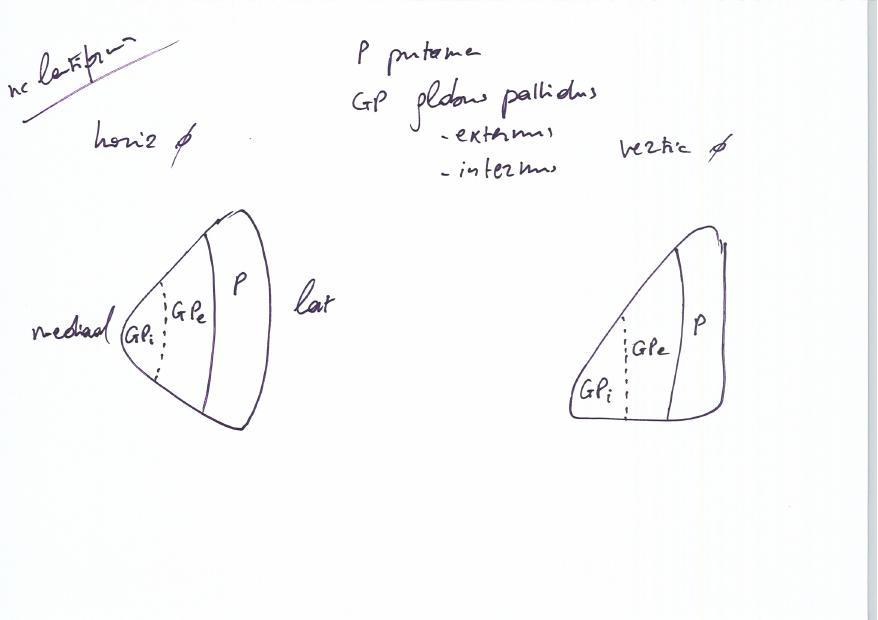 nc lentiformis
P putamen
GP globus pallidus
- externus
- internus
horiz ϕ
vertic ϕ
medial
GPi
GPe
P
lat
GPi
GPe
P